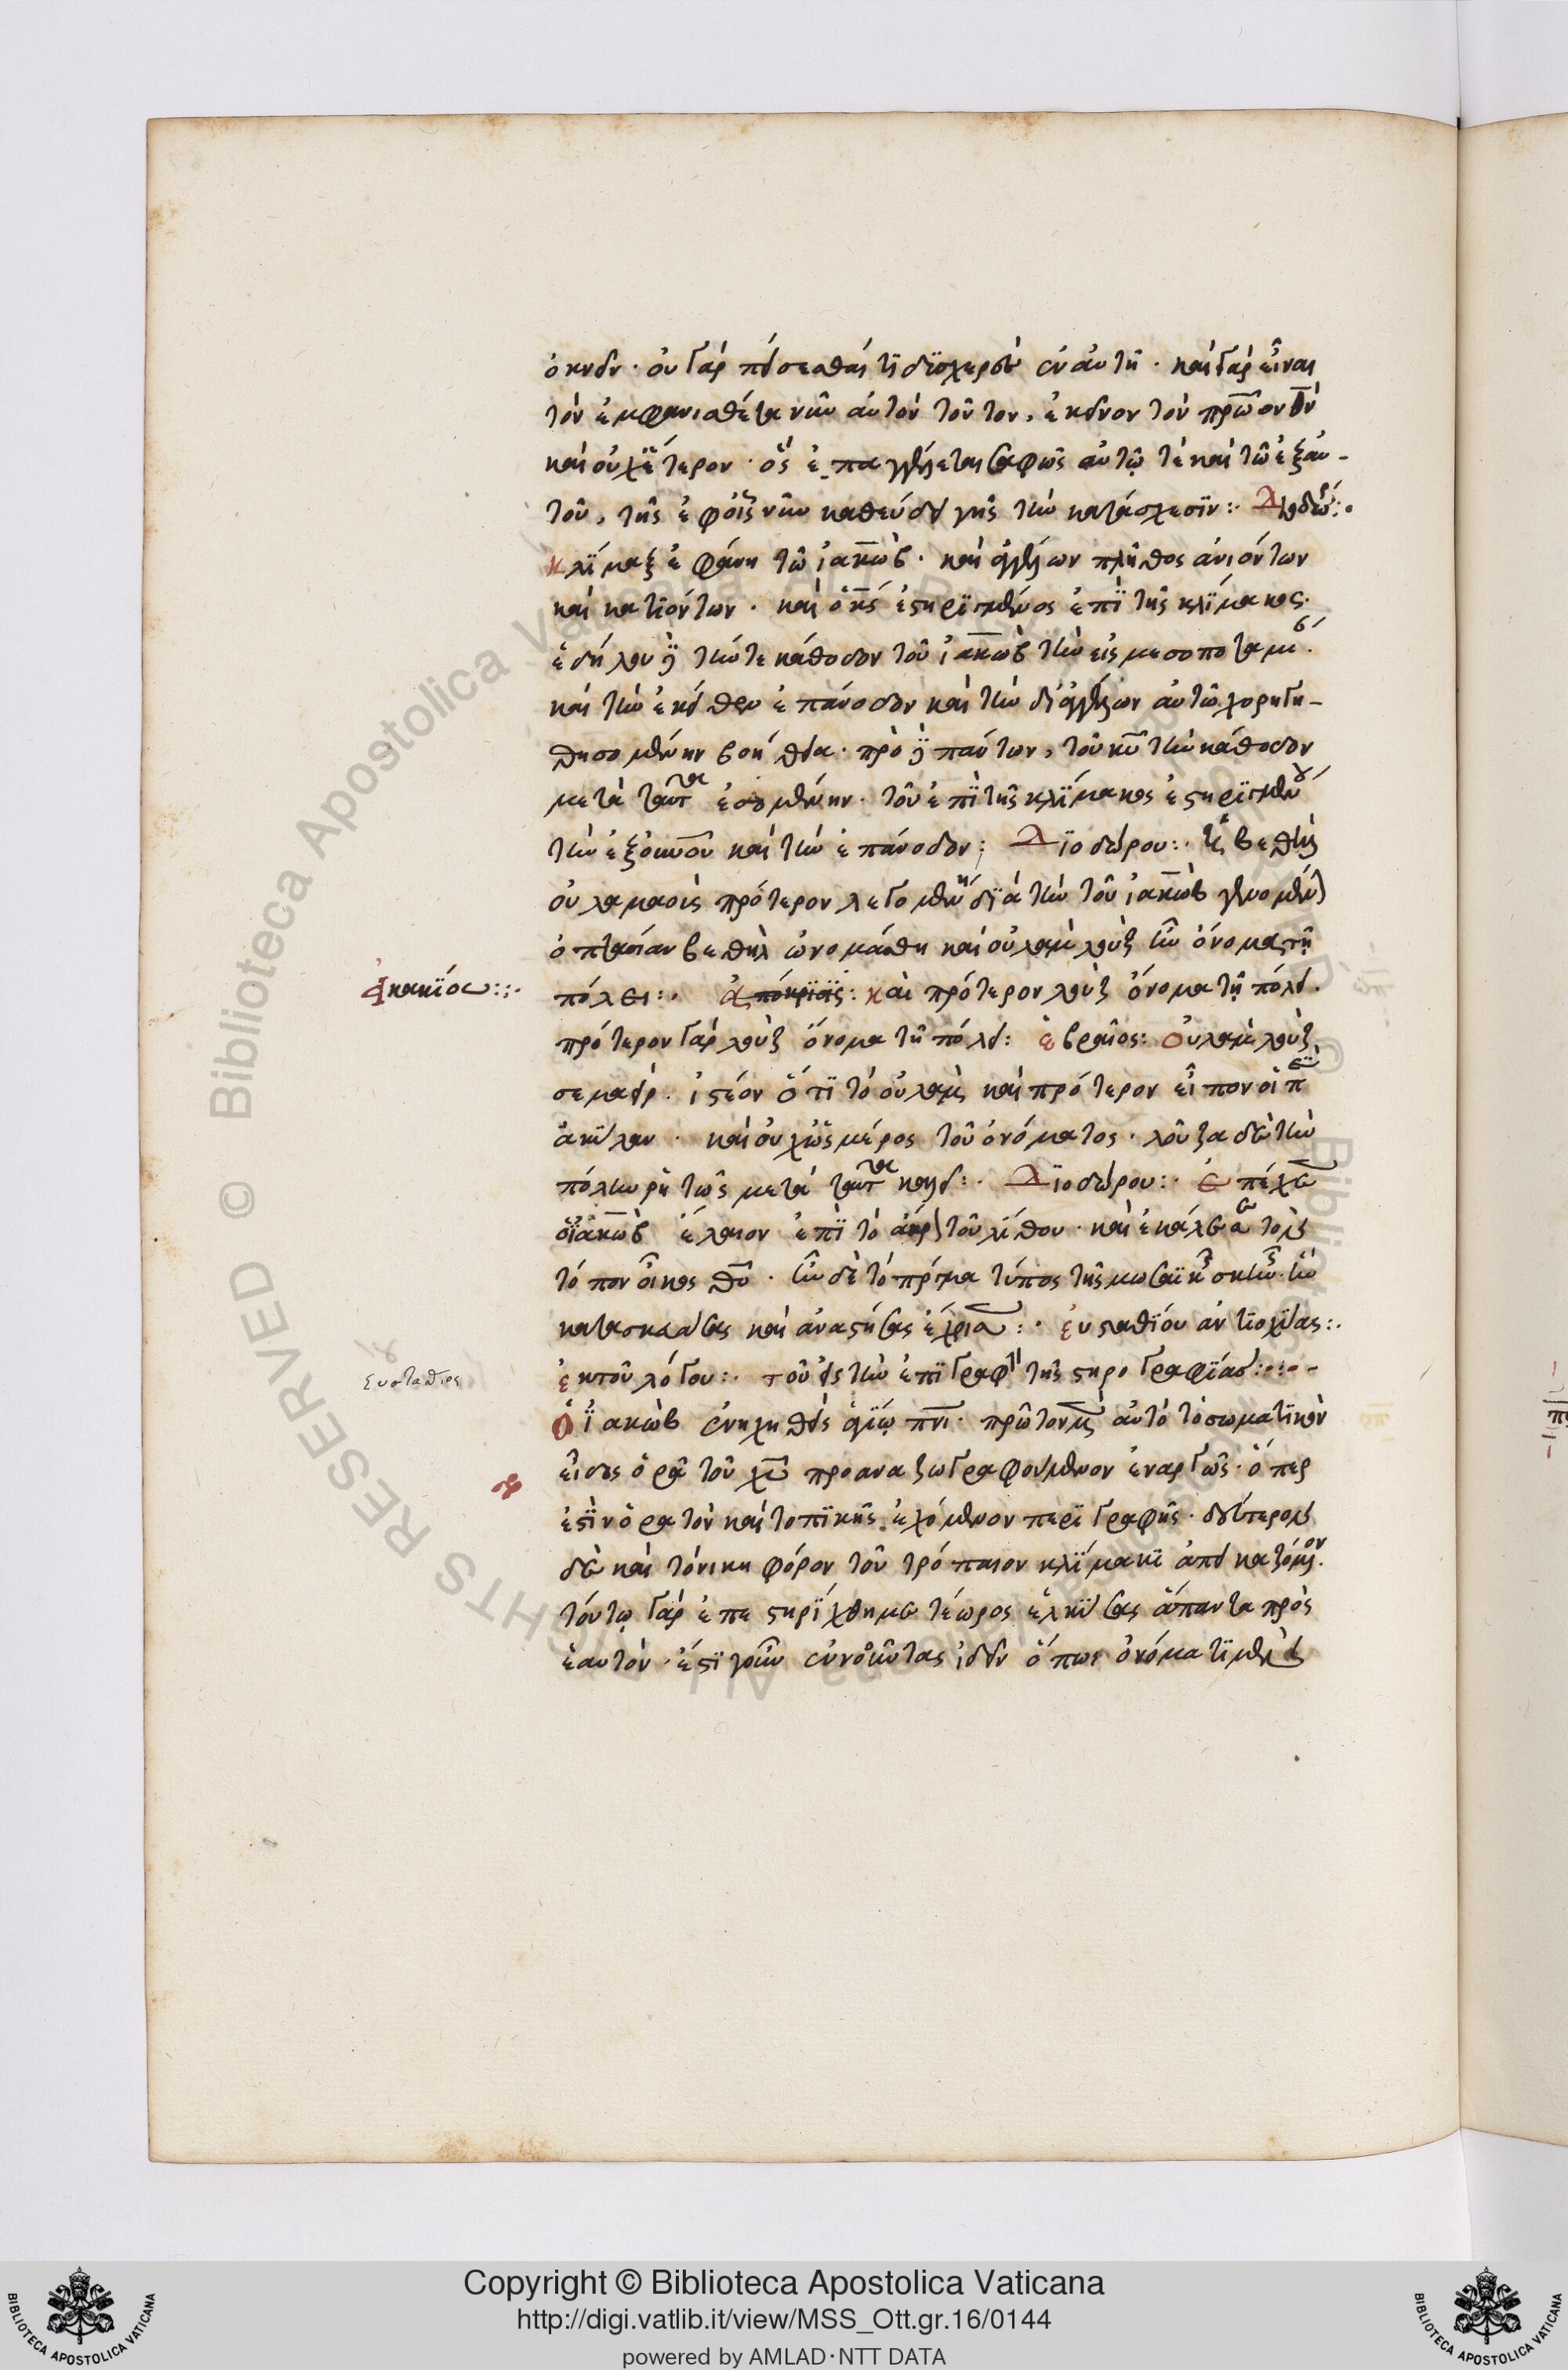 ὀκνεῖν· οὐ γὰρ πείσεσθαί τι δυσχερὲς ἐν αὐτῇ· καὶ γὰρ εἶναι
τὸν ἐμφανισθέντα νῦν αὐτὸν τοῦτον, ἐκεῖνον τὸν πρῶτον θν
καὶ οὐχ ἕτερον· ὃς ἐπαγγέλλεται σαφῶς αὐτῷ τε καὶ τῷ ἐξ αυ-
τοῦ, τῆς ἐφ οἷς νῦν καθεύδει γῆς τὴν κατάσχεσιν:· Διοδώρ:·
κλίμαξ ἐφάνη τῷ ἰακὼβ· καὶ ἀγγέλων πλῆθος ἀνιόντων
καὶ κατιόντων· καὶ ὁ κς ἐστηριγμένος ἐπὶ τῆς κλίμακος·
ἐδήλου δὲ τήν τε κάθοδον τοῦ ἰακὼβ τὴν εἰς μεσοποταμι
καὶ τὴν ἐκεῖθεν ἐπάνοδον καὶ τὴν δι ἀγγέλων αὐτῷ χορηγη-
θησομένην βοήθειαν· πρὸ δὲ πάντων, τοῦ κυ τὴν κάθοδον
μετὰ ταῦτα ἐσομένην· τοῦ ἐπὶ τῆς κλίμακος ἐστηριγμένου
τὴν ἐξ οὐνοῦ καὶ τὴν ἐπάνοδον: Διοδώρου:· τῆς βεθὴλ
οὐλαμαοὺς πρότερον λεγομένης διὰ τὴν τοῦ ἰακὼβ γενομένην
ὀπτασίαν βεθὴλ ὠνομάσθη καὶ οὐλαμλοὺζ ἦν ὄνομα τῇ
ἀκακίου:·
πόλει:· ἀπόκρισις: καὶ πρότερον λοὺζ ὄνομα τῇ πόλει·
πρότερον γὰρ λοὺζ ὄνομα τῇ πόλει: ἑβραῖος: Οὐλαμλοὺζ
σεμαείρ· ἰστέον ὅτι τὸ οὐλαμ καὶ πρότερον εἶπον οἱ π
ἀκύλαν· καὶ οὐχ ὡς μέρος τοῦ ὀνόματος· λοῦζα δὲ τὴν
πόλιν ῥητῶς μετὰ ταῦτα καλεῖ:· Διοδώρου:· ἐπέχεεν
ὁ ἰακὼβ ἔλαιον ἐπὶ τὸ ἄκρον τοῦ λίθου· καὶ ἐκάλεσε τὸν
τόπον οἶκος θυ· ἦν δὲ τὸ πρᾶγμα τύπος τῆς μωσαϊκῆς σκηνῆς· ἣν
κατασκευάσας καὶ ἀναστήσας ἔχρισεν:· εὐσταθίου ἀντιοχείας:·
Ευσταθιος
ἐκ τοῦ λόγου:· τοῦ εἰς τὴν ἐπιγραφὴν τῆς στηρογραφίας:·:·-
Ὁ ἰακὼβ ἐνηχηθεὶς ἁγίῳ πνι· πρῶτον μὲν αὐτὸ τὸ σωματικὸν
εἶδος ὁρᾷ τοῦ χυ προαναζωγραφούμενον ἐναργῶς· ὅπερ
ἐστὶν ὁρατὸν καὶ τοπικῆς ἐχόμενον περιγραφῆς· δεύτερον
δὲ καὶ τὸ νικηφόρον τοῦ τρόπαιον κλίμακι ἀπεικαζόμενον·
τούτῳ γὰρ ἐπεστηρίχθη μετέωρος ἑλκύσας ἅπαντα πρὸς
ἑαυτόν· ἔστι γοῦν ἐννοοῦντας ἰδεῖν ὅπως ὀνόματι μὲν
Copyright © Biblioteca Apostolica Vaticana
http://digi.vatlib.it/view/MSS_Ott.gr.16/0144
powered by AMLAD·NTT DATA